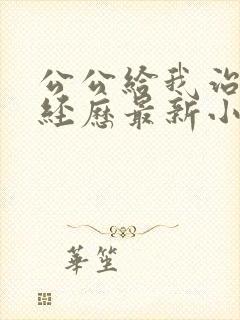 公公給我治
經歷最新小
華笙